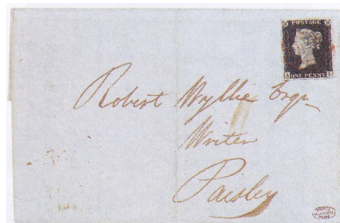 POSTAGE
ONE PENNY
Robert Wyllie Esqr
Writer
Paisley